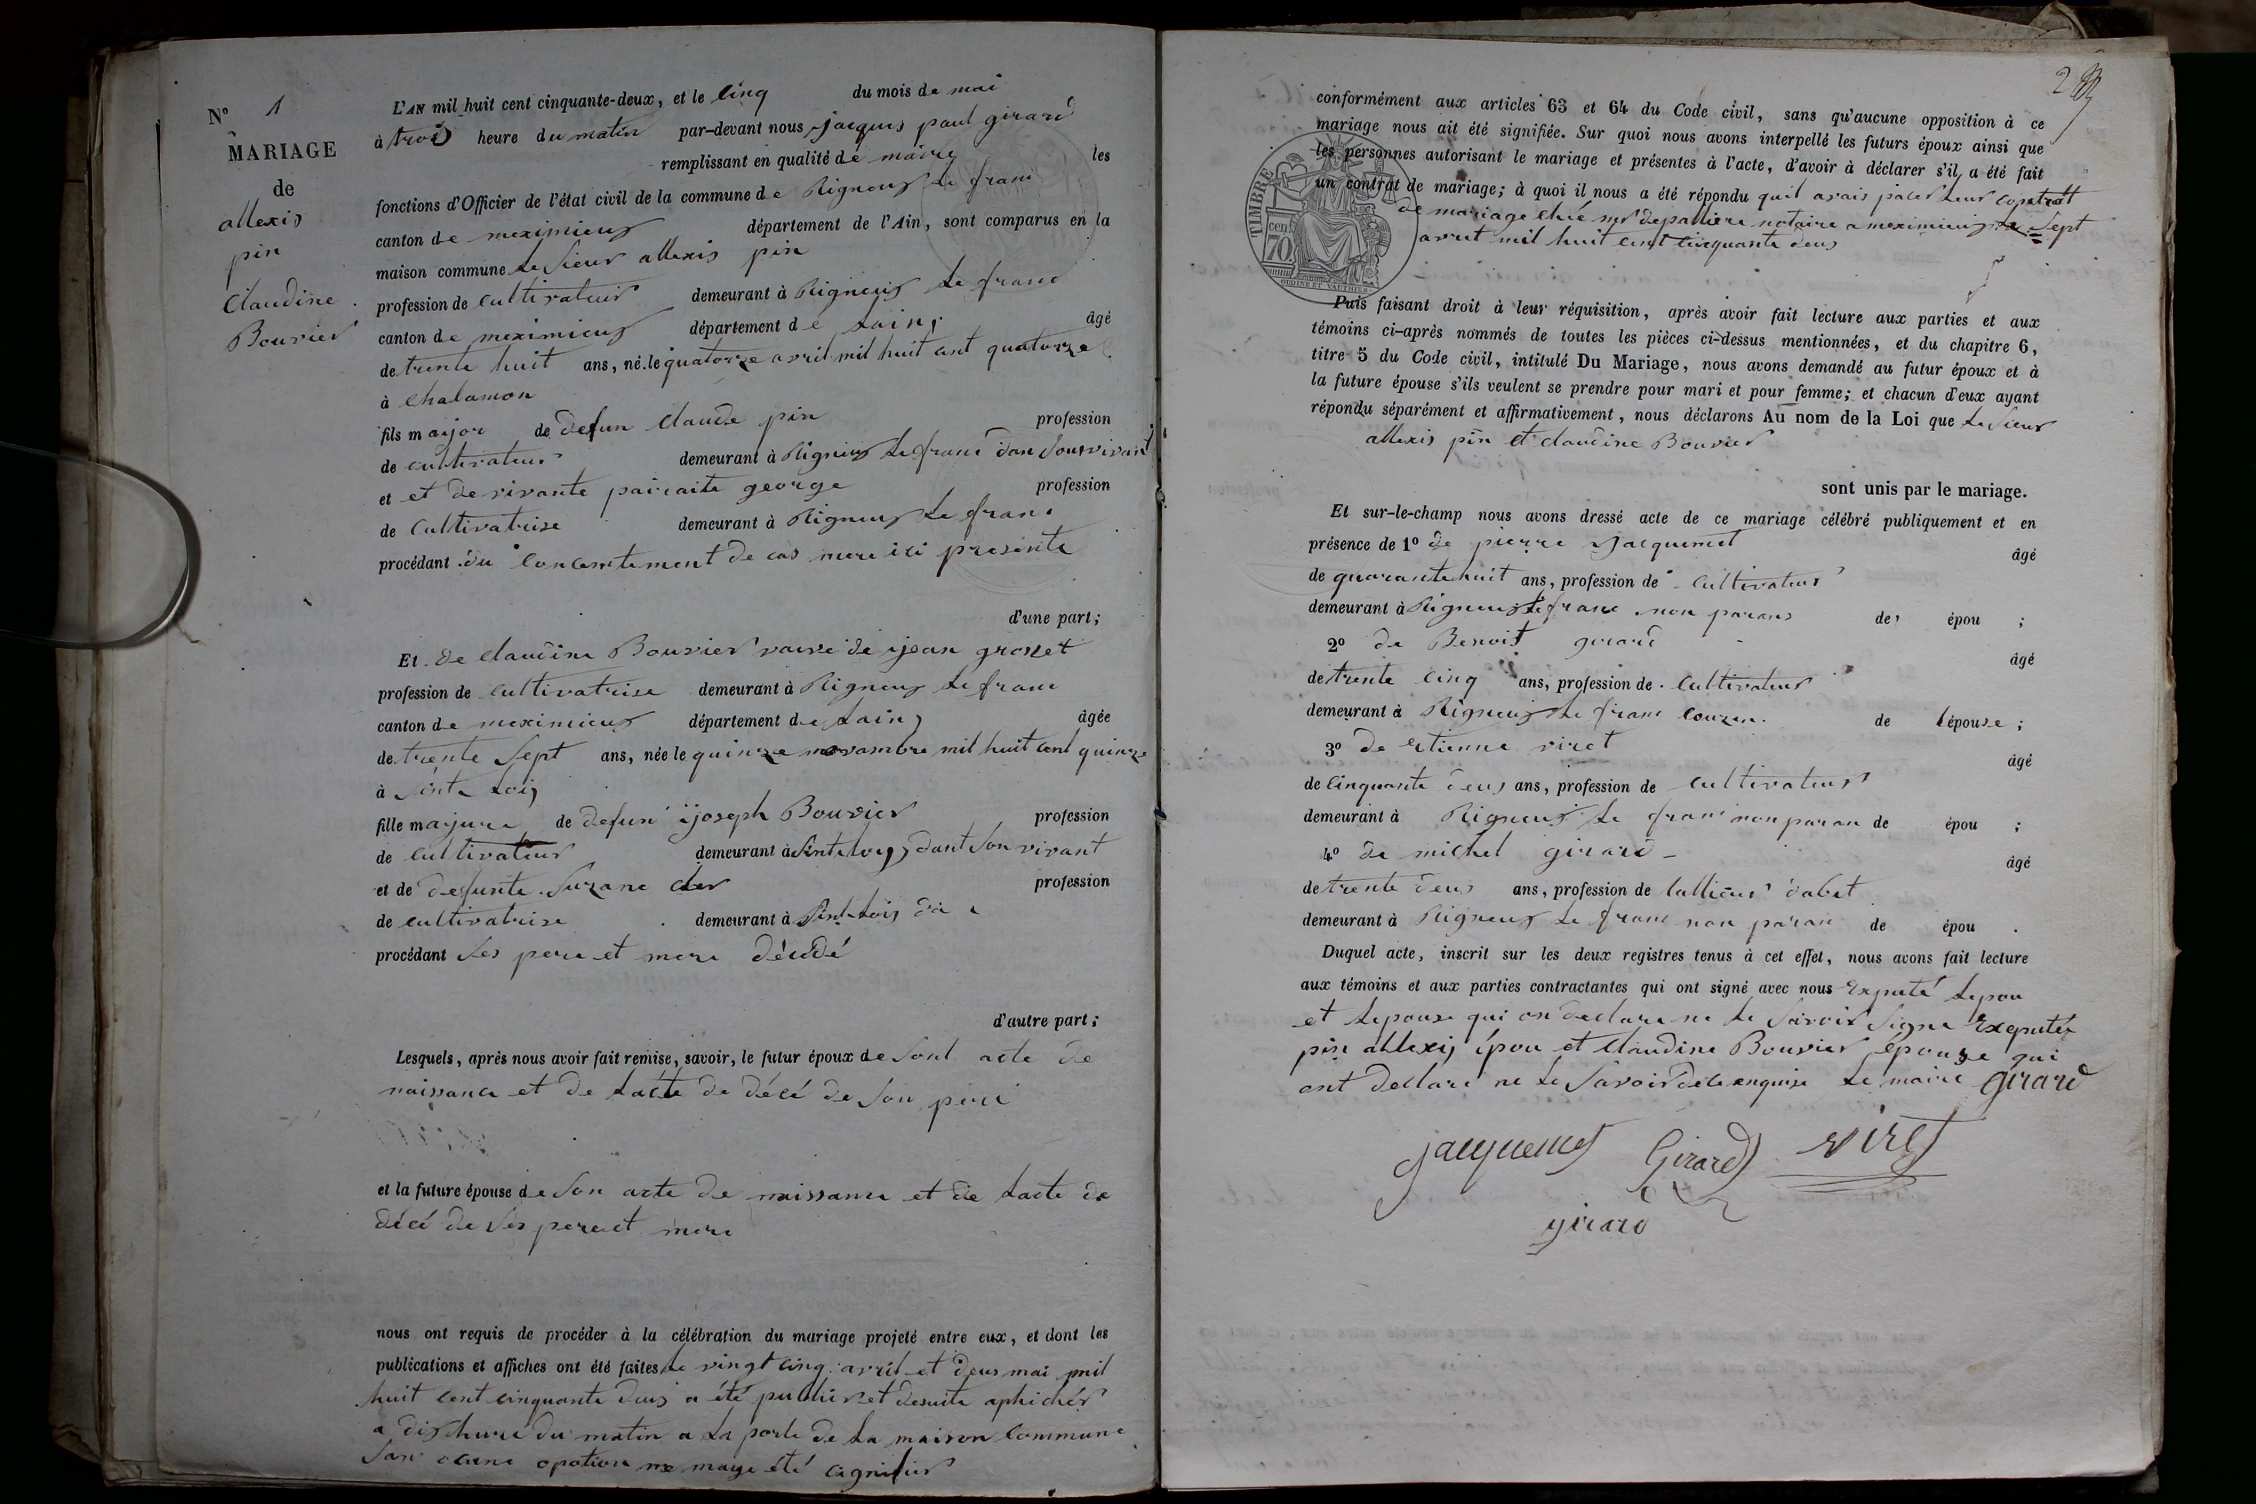 N° 1
MARIAGE
de
allexis
pin
Claudine
Bouvier
L'AN mil huit cent cinquante-deux, et le cinq du mois de mai
à trois heure du matin par-devant nous jacques paul girard
remplissant en qualité de maire les
fonctions d'Officier de l'état civil de la commune de Rigneux le franc
canton de meximieux département de l'Ain, sont comparus en la
maison commune le sieur allexis pin
profession de cultivateur demeurant à Rigneux le franc
canton de meximieux département de lain, âgé
de trente huit ans, né le quatorze avril mil huit cent quatorze
à chalamon
fils major de defun claude pin profession
de cultivateur demeurant à Rigneux le franc dan son vivant
et et de vivante george profession
de cultivatrise demeurant à Rigneux le franc
procédant du concentement de cas mere ici presente
d'une part;
Et de claudine Bouvier vauve de ijean grosset
profession de cultivatrise demeurant à Rigneux le franc
canton de meximieux département de lain, âgée
de trente sept ans, née le quinze novambre mil huit cent quinze
à sinte loij
fille majure de defun ijoseph Bouvier profession
de cultivateur demeurant à sinte loyj dant son vivant
et de defunte suzane profession
de cultivatrise demeurant à sinte loij
procédant ses pere et mere décédé
d'autre part;
Lesquels, après nous avoir fait remise, savoir, le futur époux de sont acte de
naissance et de lacte de décé de son pere
et la future épouse de son acte de naissance et de lacte de
décé de ses pere et mere
nous ont requis de procéder à la célébration du mariage projeté entre eux, et dont les
publications et affiches ont été faites le vingt cinq avril et deux mai mil
huit cent cinquante deux a été publier et desuite aphichér
a dix heure du matin a la porte de la maison commune
san ocune opotion ne maye été cignifier
conformément aux articles 63 et 64 du Code civil, sans qu'aucune opposition à ce
mariage nous ait été signifiée. Sur quoi nous avons interpellé les futurs époux ainsi que
les personnes autorisant le mariage et présentes à l'acte, d'avoir à déclarer s'il a été fait
un contrat de mariage; à quoi il nous a été répondu quil avais pacer leur contratt
de mariage chié depalliere notaire a meximieux le sept
avrit mil huit cent cinquante deux
TIMBRE
70 cen
Puis faisant droit à leur réquisition, après avoir fait lecture aux parties et aux
témoins ci-après nommés de toutes les pièces ci-dessus mentionnées, et du chapitre 6,
titre 5 du Code civil, intitulé Du Mariage, nous avons demandé au futur époux et à
la future épouse s'ils veulent se prendre pour mari et pour femme; et chacun d'eux ayant
répondu séparément et affirmativement, nous déclarons Au nom de la Loi que le sieur
allexis pin et claudine Bouvier
sont unis par le mariage.
Et sur-le-champ nous avons dressé acte de ce mariage célébré publiquement et en
présence de 1° de pierre jacquemet âgé
de quarante huit ans, profession de cultivateur
demeurant à Rigneux le franc non parans de épou ;
2° de Benoit girard âgé
de trente cinq ans, profession de cultivateur
demeurant à Rigneux le franc couzen de lépouse ;
3° de etienne viret âgé
de cinquante deux ans, profession de cultivateur
demeurant à Rigneux le franc non paran de épou ;
4° de michel girard âgé
de trente deux ans, profession de
demeurant à Rigneux le franc non paran de épou .
Duquel acte, inscrit sur les deux registres tenus à cet effet, nous avons fait lecture
aux témoins et aux parties contractantes qui ont signé avec nous exputé lepou
et lepouse qui on declare ne le savoir signe
pin allexij épou et claudine Bouvier épouse qui
ont declare ne le savoir de le enquise le maire girard
jacquemet Girard viret
girard